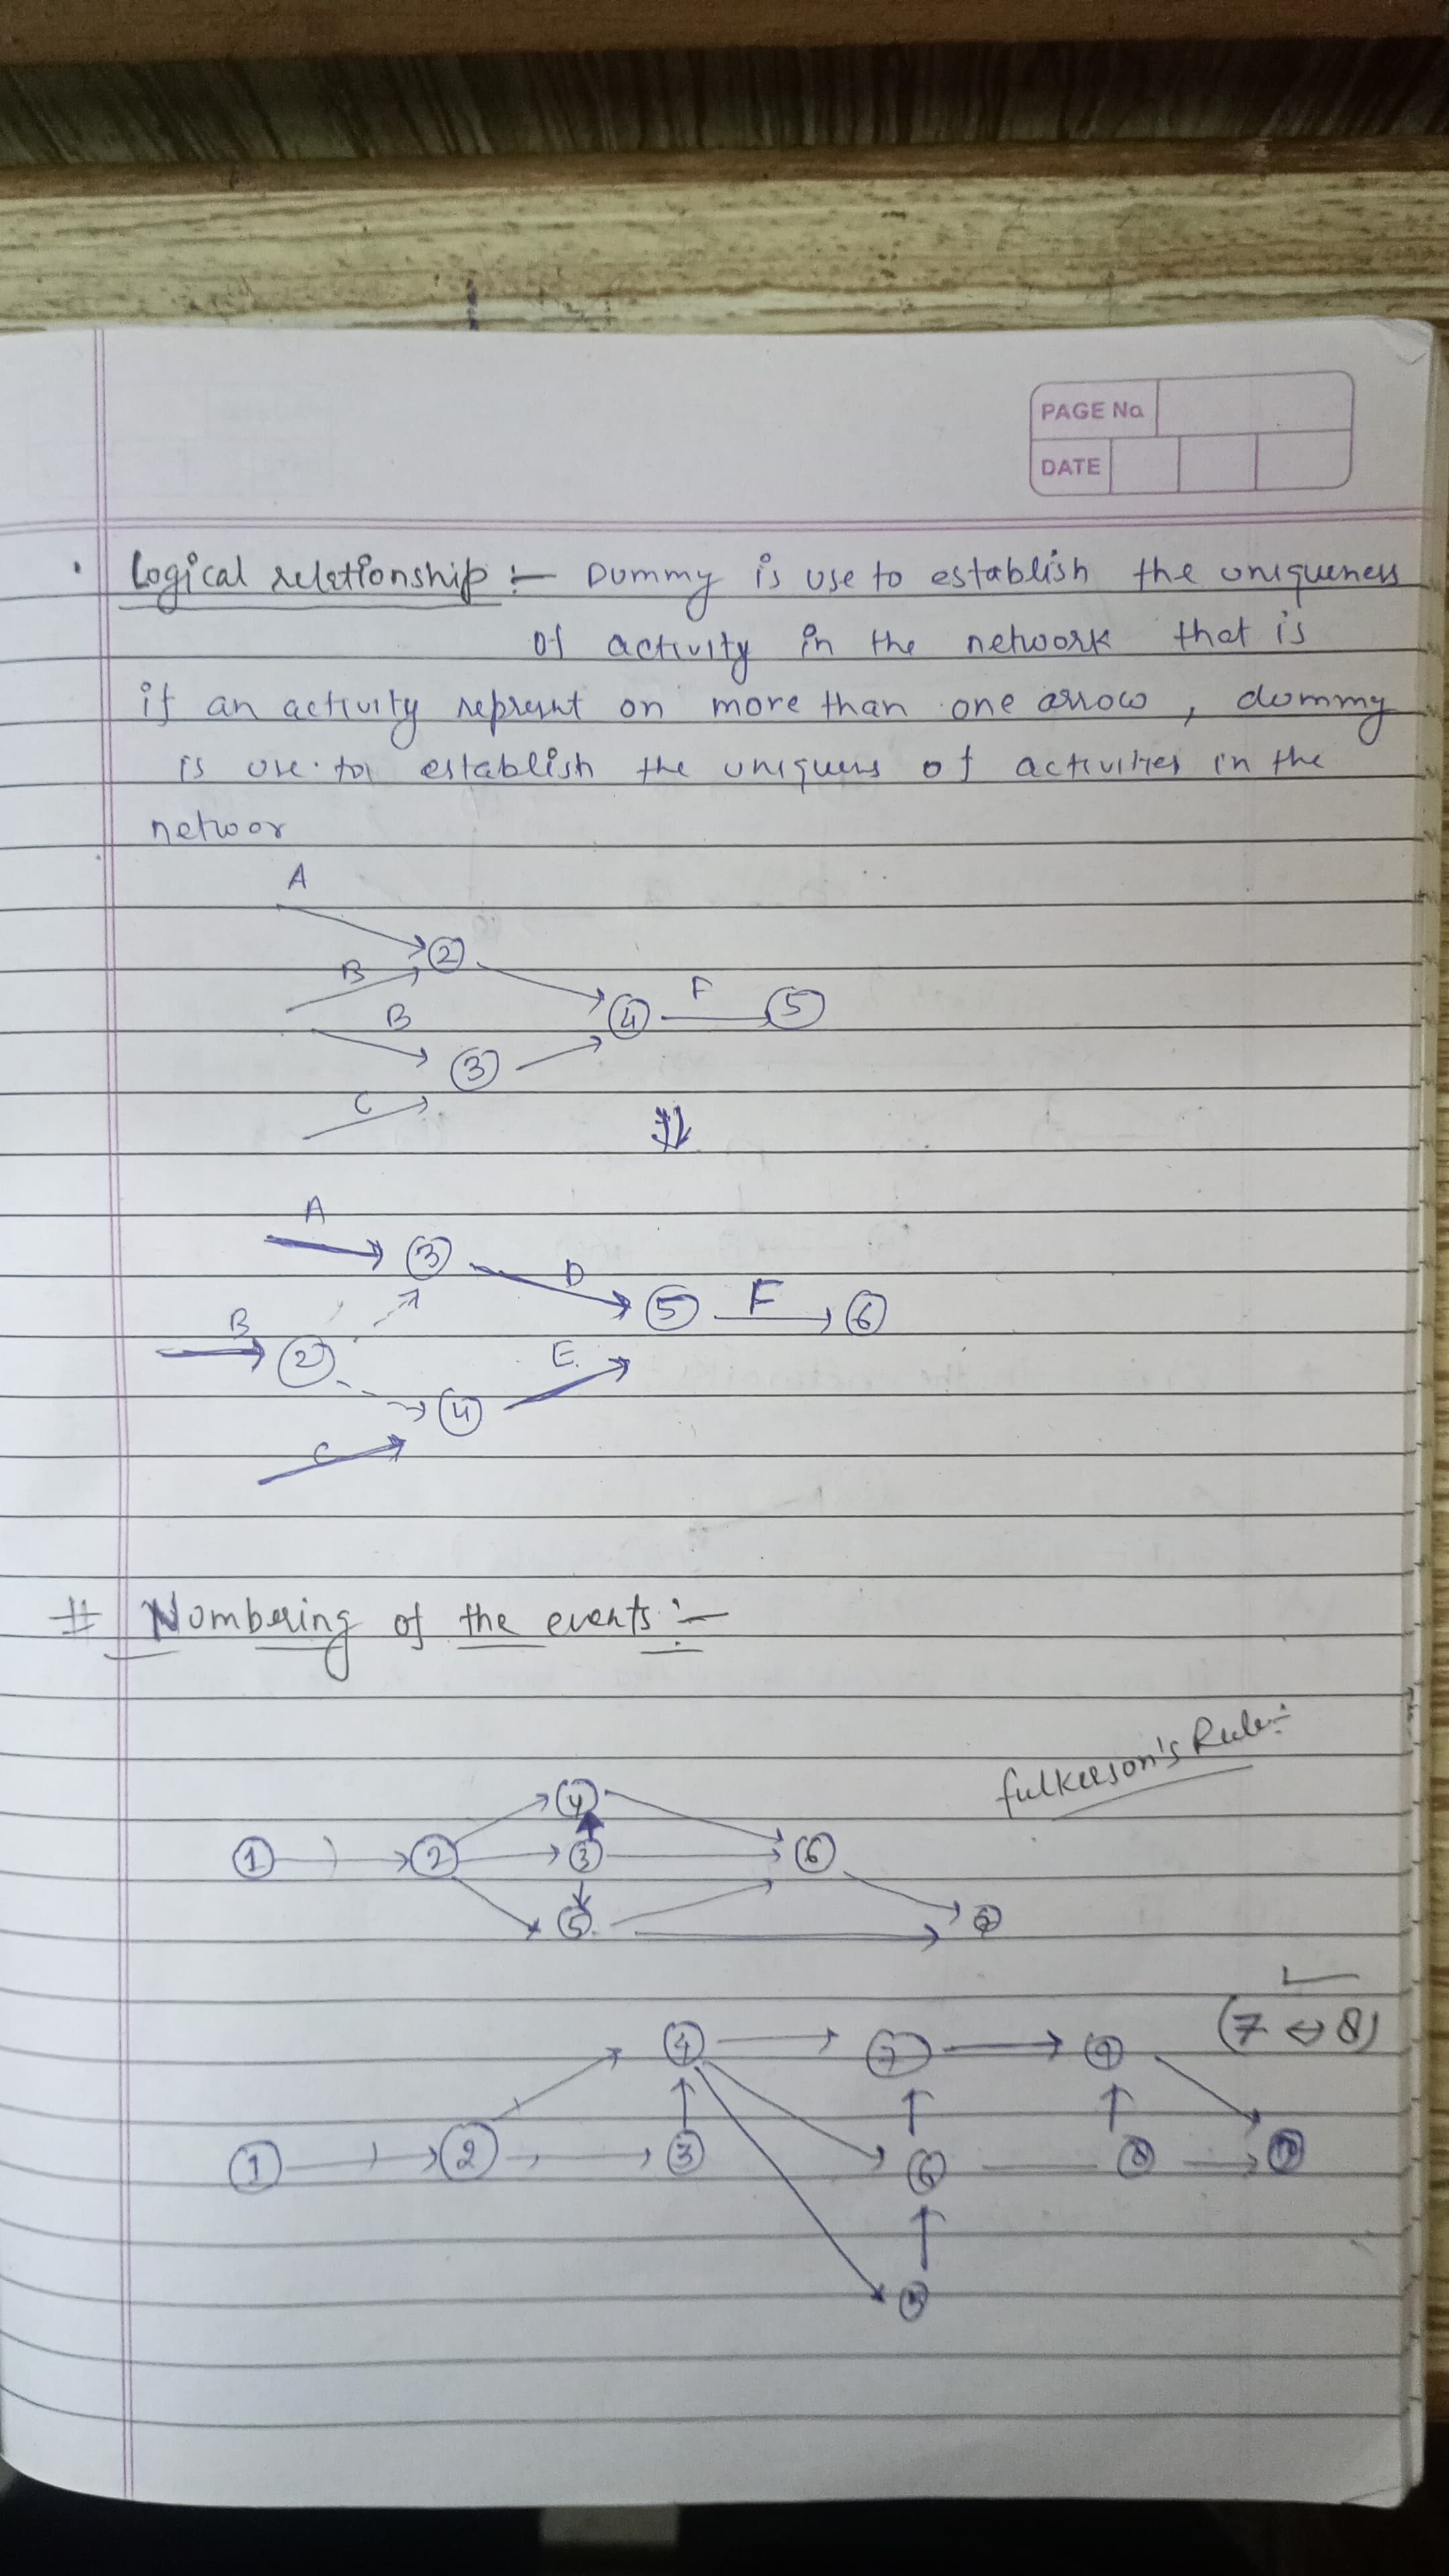 PAGE No
DATE
Logical relationship :- Dummy is use to establish the uniqueness
of activity in the network that is
if an activity represnt on more than one arrow, dummy
is use to establish the uniquns of activities in the
networ
A
B
2
B
4
F
5
3
C
A
3
D
B
2
5
F
6
E.
4
C
# Numbering of the events :-
Fulkerson's Rule:-
4
1
2
3
6
5
7
(7 ⇔ 8)
4
7
9
1
2
3
6
8
10
5